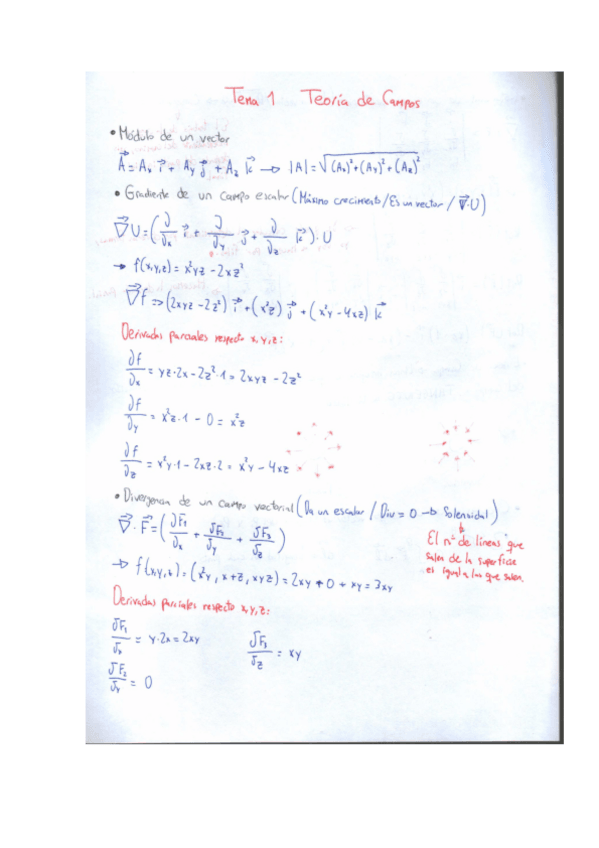 Tema 1 Teoría de Campos
• Módulo de un vector
A⃗ = Ax i⃗ + Ay j⃗ + Az k⃗ → |A| = √(Ax)²+(Ay)²+(Az)²
• Gradiente de un campo escalar (Máximo crecimiento / Es un vector / ∇⃗·U)
∇⃗U = (∂/∂x i⃗ + ∂/∂y j⃗ + ∂/∂z k⃗)·U
→ f(x,y,z) = x²yz - 2xz²
∇⃗f => (2xyz - 2z²) i⃗ + (x²z) j⃗ + (x²y - 4xz) k⃗
Derivadas parciales respecto x, y, z:
∂f/∂x = yz·2x - 2z²·1 = 2xyz - 2z²
∂f/∂y = x²z·1 - 0 = x²z
∂f/∂z = x²y·1 - 2xz·2 = x²y - 4xz
• Divergencia de un campo vectorial (Da un escalar / Div = 0 → Solenoidal)
∇⃗·F⃗ = (∂F₁/∂x + ∂F₂/∂y + ∂F₃/∂z)
El nº de líneas que
salen de la superficie
es igual a las que salen.
→ f(x,y,z) = (x²y, x+z, xyz) = 2xy + 0 + xy = 3xy
Derivadas parciales respecto x, y, z:
∂F₁/∂x = y·2x = 2xy
∂F₃/∂z = xy
∂F₂/∂y = 0